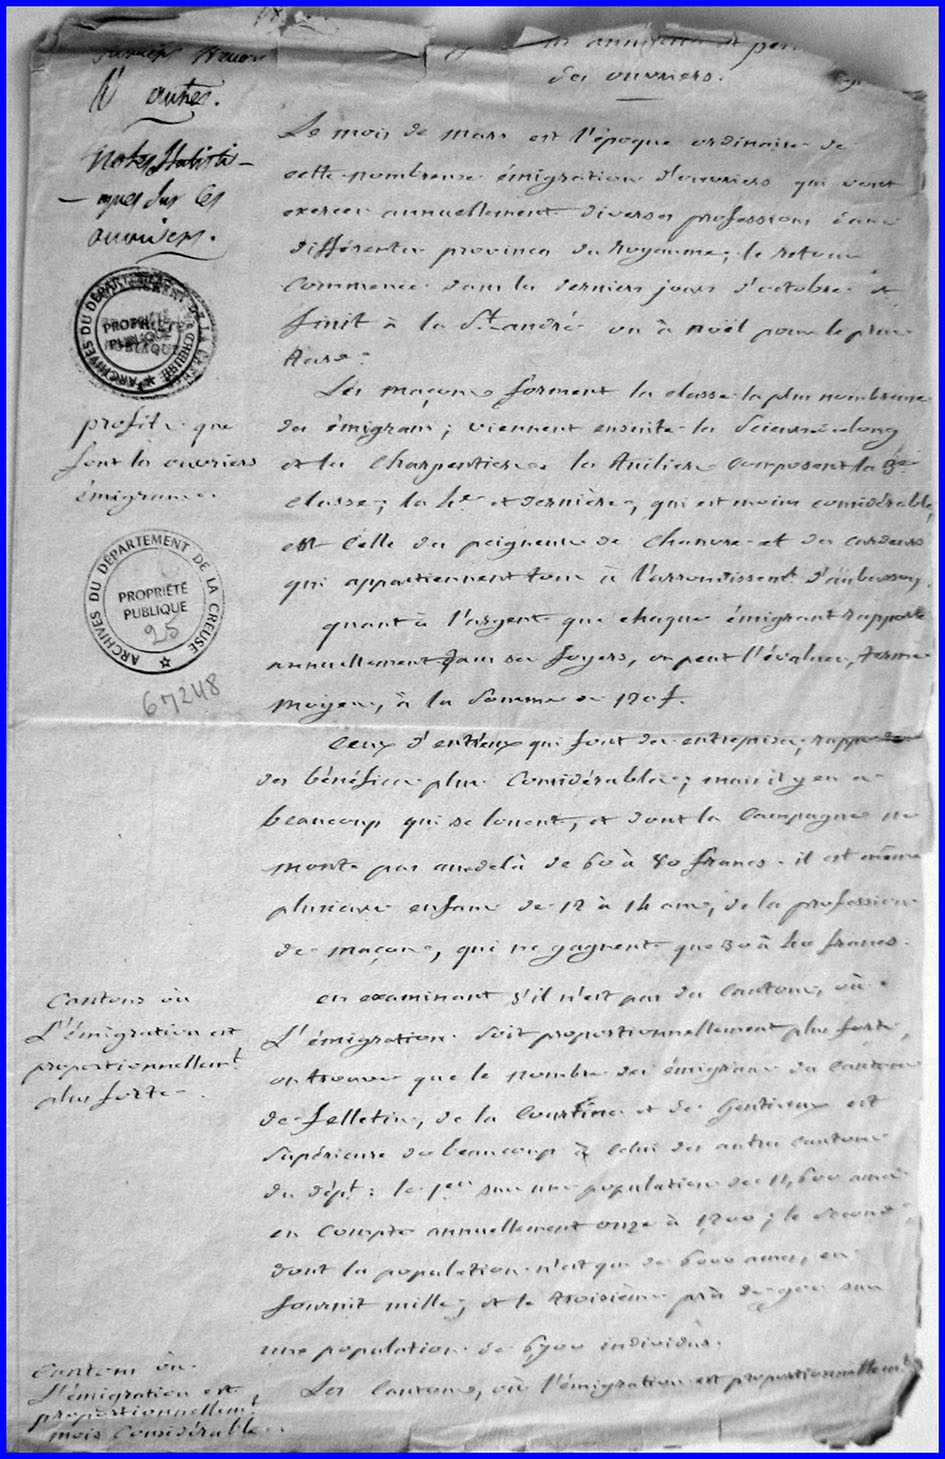 des ouvriers.
N autres.
Notes statisti-
-ques sur les
ouvriers.
Le mois de mars est l'époque ordinaire de
cette nombreuse émigration d'ouvriers qui vont
exercer annuellement diverses professions dans
différentes provinces du Royaume; le retour
commence dans les derniers jours d'octobre et
finit à la St. andré ou à noël pour le plus
tard.
ARCHIVES DU DÉPARTEMENT DE LA CREUSE
PROPRIÉTÉ PUBLIQUE
profits que
font les ouvriers
émigrans.
Les maçons forment la classe la plus nombreuse
des émigrans; viennent ensuite les scieurs de long
et les charpentiers. les tuiliers composent la 3e
classe; la 4e et dernière, qui est moins considérable,
est celle des peigneurs de chanvre et des cardeurs
qui appartiennent tous à l'arrondissent. d'aubusson.
ARCHIVES DU DÉPARTEMENT DE LA CREUSE
PROPRIÉTÉ
PUBLIQUE
25
67248
quant à l'argent que chaque émigrant rapporte
annuellement dans ses foyers, on peut l'évaluer, terme
moyen, à la somme de 170 f.
Ceux d'entr'eux qui font des entreprises,
des bénéfices plus considérables; mais il y en a
beaucoup qui se louent, et dont la campagne ne
monte pas audelà de 60 à 80 francs. il est même
plusieurs enfans de 12 à 14 ans, de la profession
de maçons, qui ne gagnent que 30 à 40 francs.
Cantons où
L'émigration est
proportionnellemt
plus forte.
en examinant s'il n'est pas des cantons, où
L'émigration soit proportionnellement plus forte,
on trouve que le nombre des émigrans des cantons
de felletin, de la Courtine et de Gentioux est
supérieur de beaucoup à celui des autres cantons
du dépt: le 1er sur une population de 11,600 ames
en compte annuellement onze à 1200; le second
dont la population n'est que de 6000 ames, en
fournit mille; et le troisième près de 900 sur
une population de 6700 individus.
Cantons où
L'émigration est
proportionnellemt
mois considérable.
Les cantons, où l'émigration est proportionnellemt